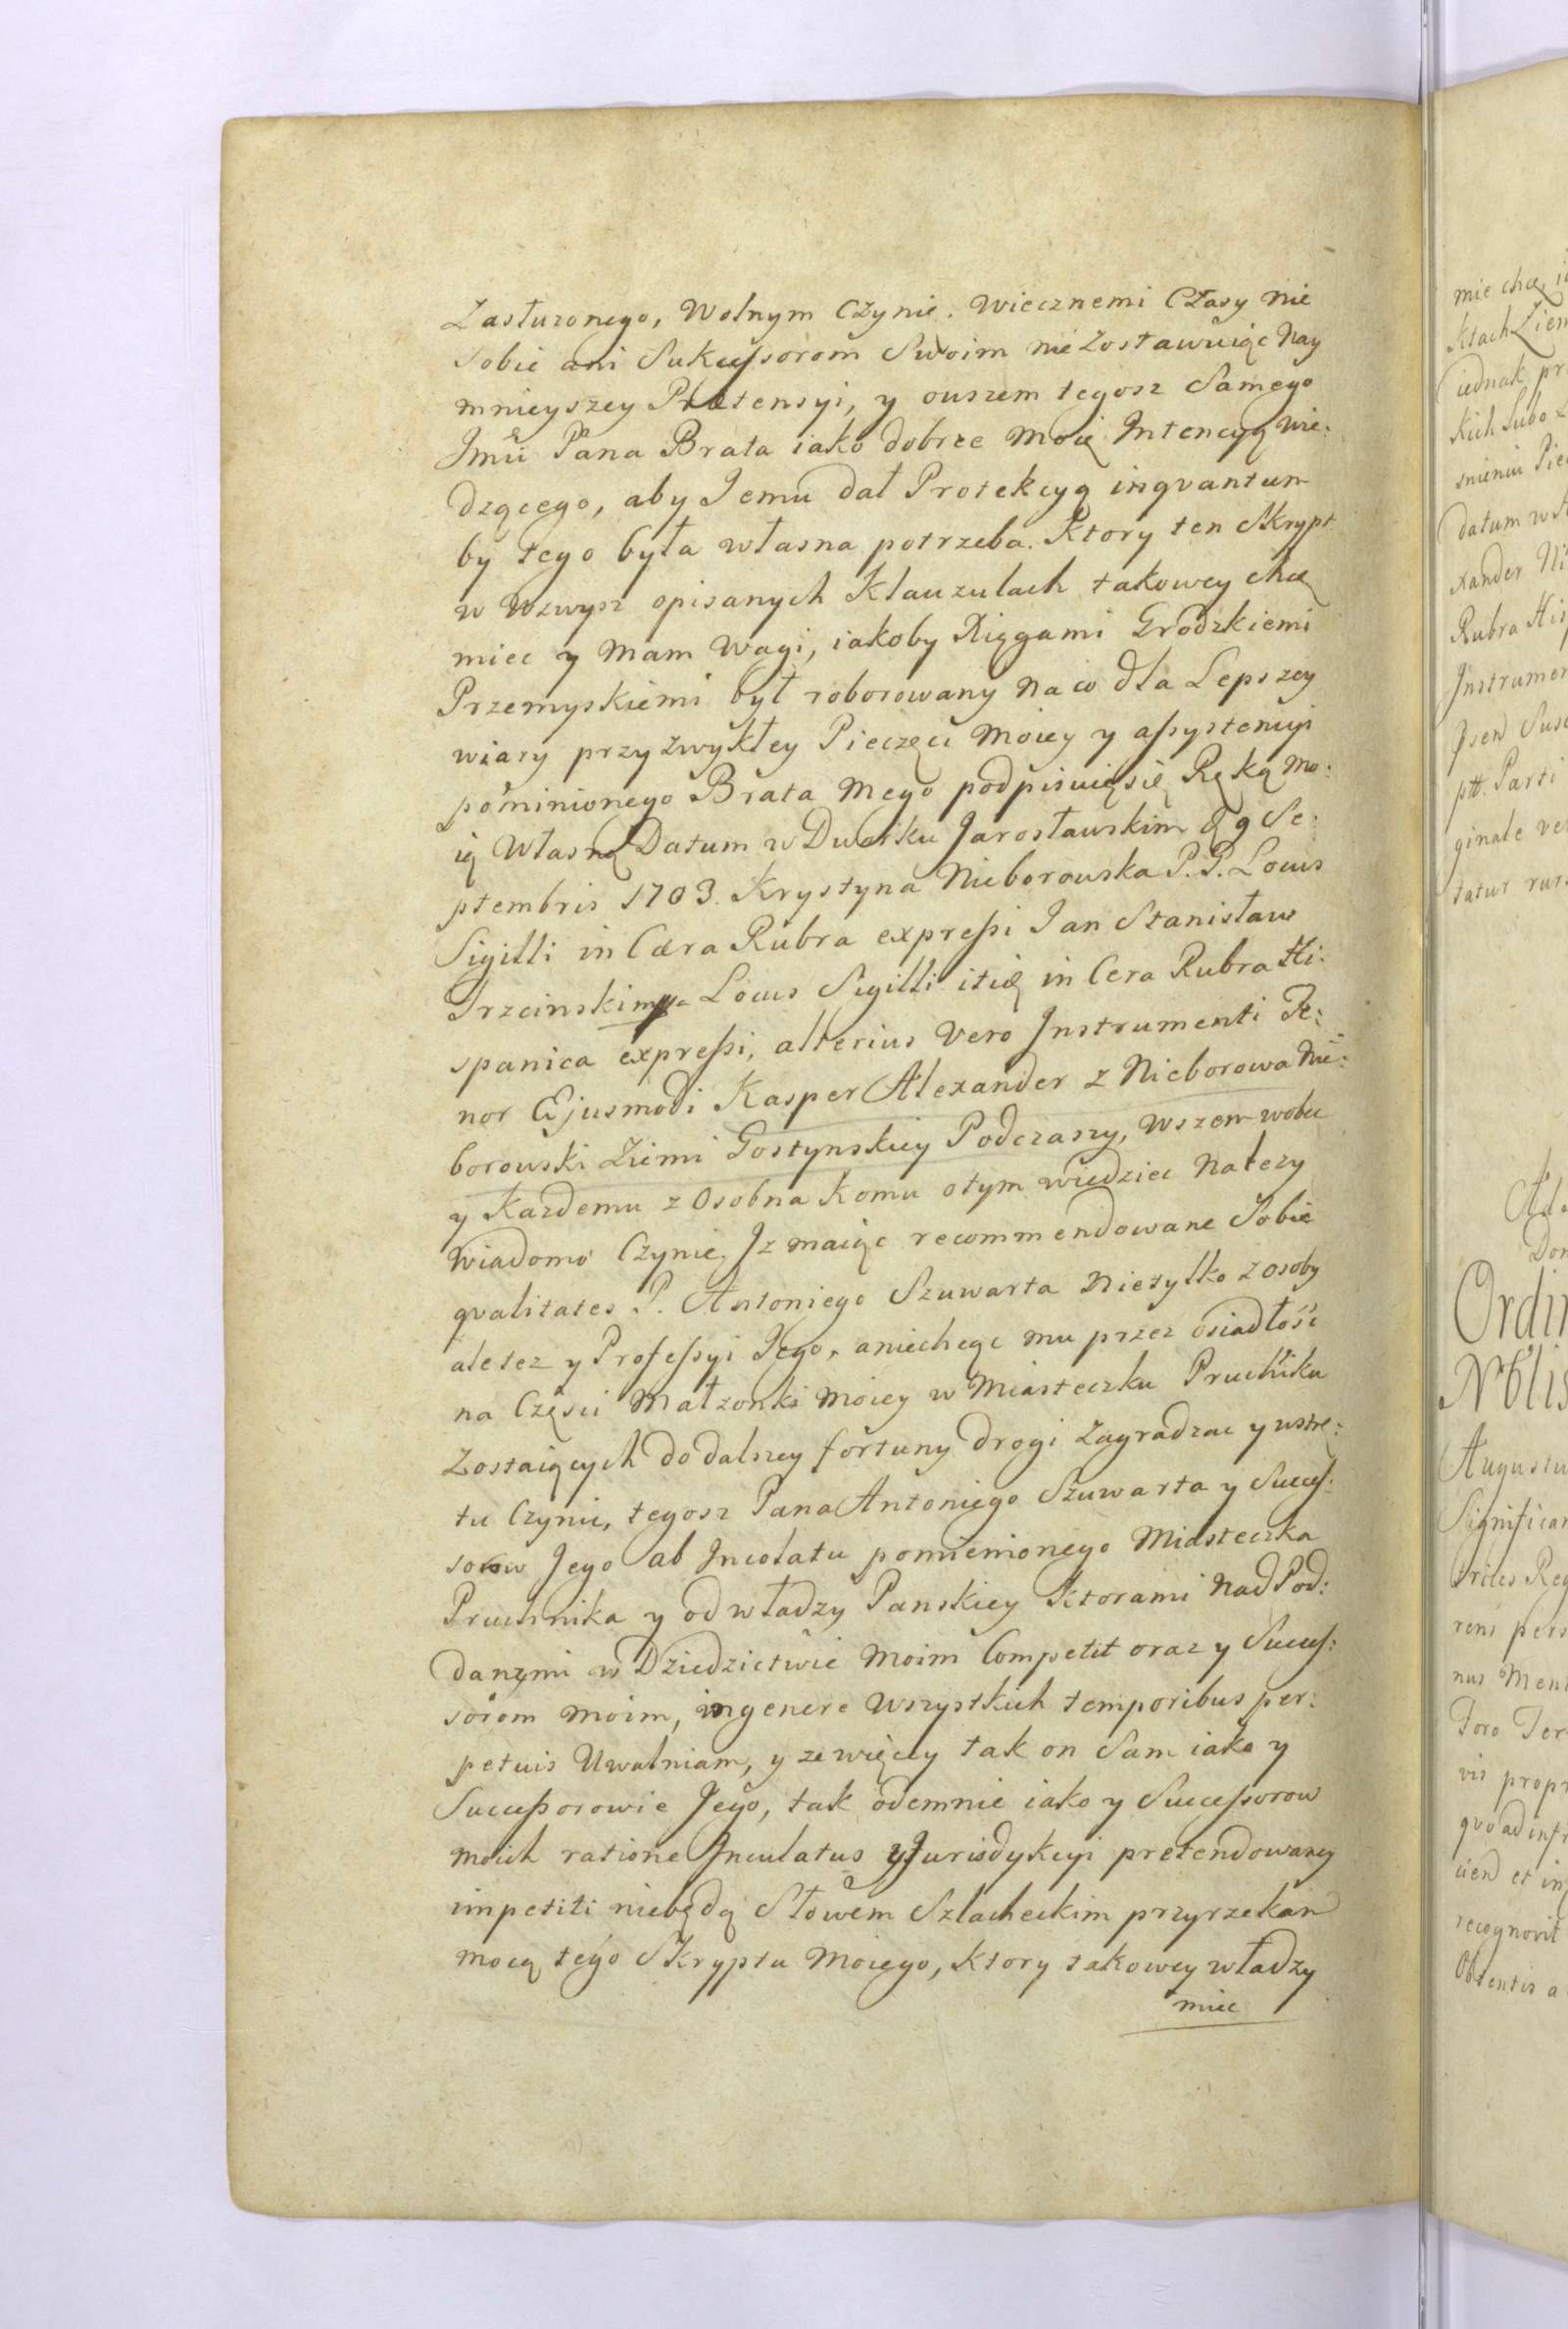 Zasłuzonego, Wolnym Czynie. Wiecznemi Czasy nie
sobie ani Sukcessorom Swoim nie Zostawuiąc Nay
mnieyszey Prætensyi, y ouszem tegosz Samego
Jmū Pana Brata iako dobrze moię Intencyą wie:
dzącego, aby Jemu dał Protekcyą inqvantum
by tego była własna potrzeba. Ktory ten Skrypt
w wzwysz opisanych Klauzulach takowey chcę
miec y mam Wagi, iakoby Xięgami Grodzkiemi
Przemyskiemi był roborowany na co dla Lepszey
wiary przy zwykłey Pieczęci moiey y assystencyi
pominionego Brata mego podpisuię się Ręką mo:
ią Własną Datum w Dworku Jarosławskim d 9 Se:
ptembris 1703. Krystyna Nieborowska P. P. Locus
Sigilli in Cæra Rubra expressi Jan Stanisław
Trzcinski mp Locus Sigilli itið in Cera Rubra Hi:
spanica expressi, alterius Vero Instrumenti Te:
nor Ejusmodi Kasper Alexander z Nieborowa Nie:
borowski Ziemi Gostynskiey Podczaszy, Wszem wobec
y Kazdemu z Osobna Komu otym wiedziec Nalezy
Wiadomo Czynie. Jz maiąc recommendowane Sobie
qvalitates P. Antoniego Szuwarta nietylko z osoby
ale tez y Professyi Jego, aniechcąc mu przez osiadłość
na Części Małzonki moiey w Miasteczku Pruchniku
Zostaiących do dalszey fortuny drogi Zagradzac y wstrę:
tu Czynic, tegosz Pana Antoniego Szuwarta y Succes:
sorow Jego ab Incolatu pomienionego Miasteczka
Pruchnika y od władzy Panskiey Ktorami Nad Pod:
danymi w Dziedzictwie Moim Competit oraz y Succes:
sorom moim, in genere Wszystkich temporibus per:
petuis Uwalniam, y ze więcey tak on Sam iako y
Successorowie Jego, tak odemnie iako y Successorow
moich ratione Inculatus y Jurisdykcyi pretendowaney
impetiti niebędą Słowem Szlacheckim przyrzekam
mocą tego Skryptu Moiego, Ktory takowey władzy
miec
mie chcę
Ktach Ziem
iednak pr
kich Lubo
datum w
xander Ni
Rubra His
Instrumen
ptt. Parti
ginale ve
tatur rur
Ordin
Nblis
Augustu
Significan
rens pers
nus Ment
Foro Ter
vis propr
qvo ad inf
cien et in
recognovit
Obtentis a